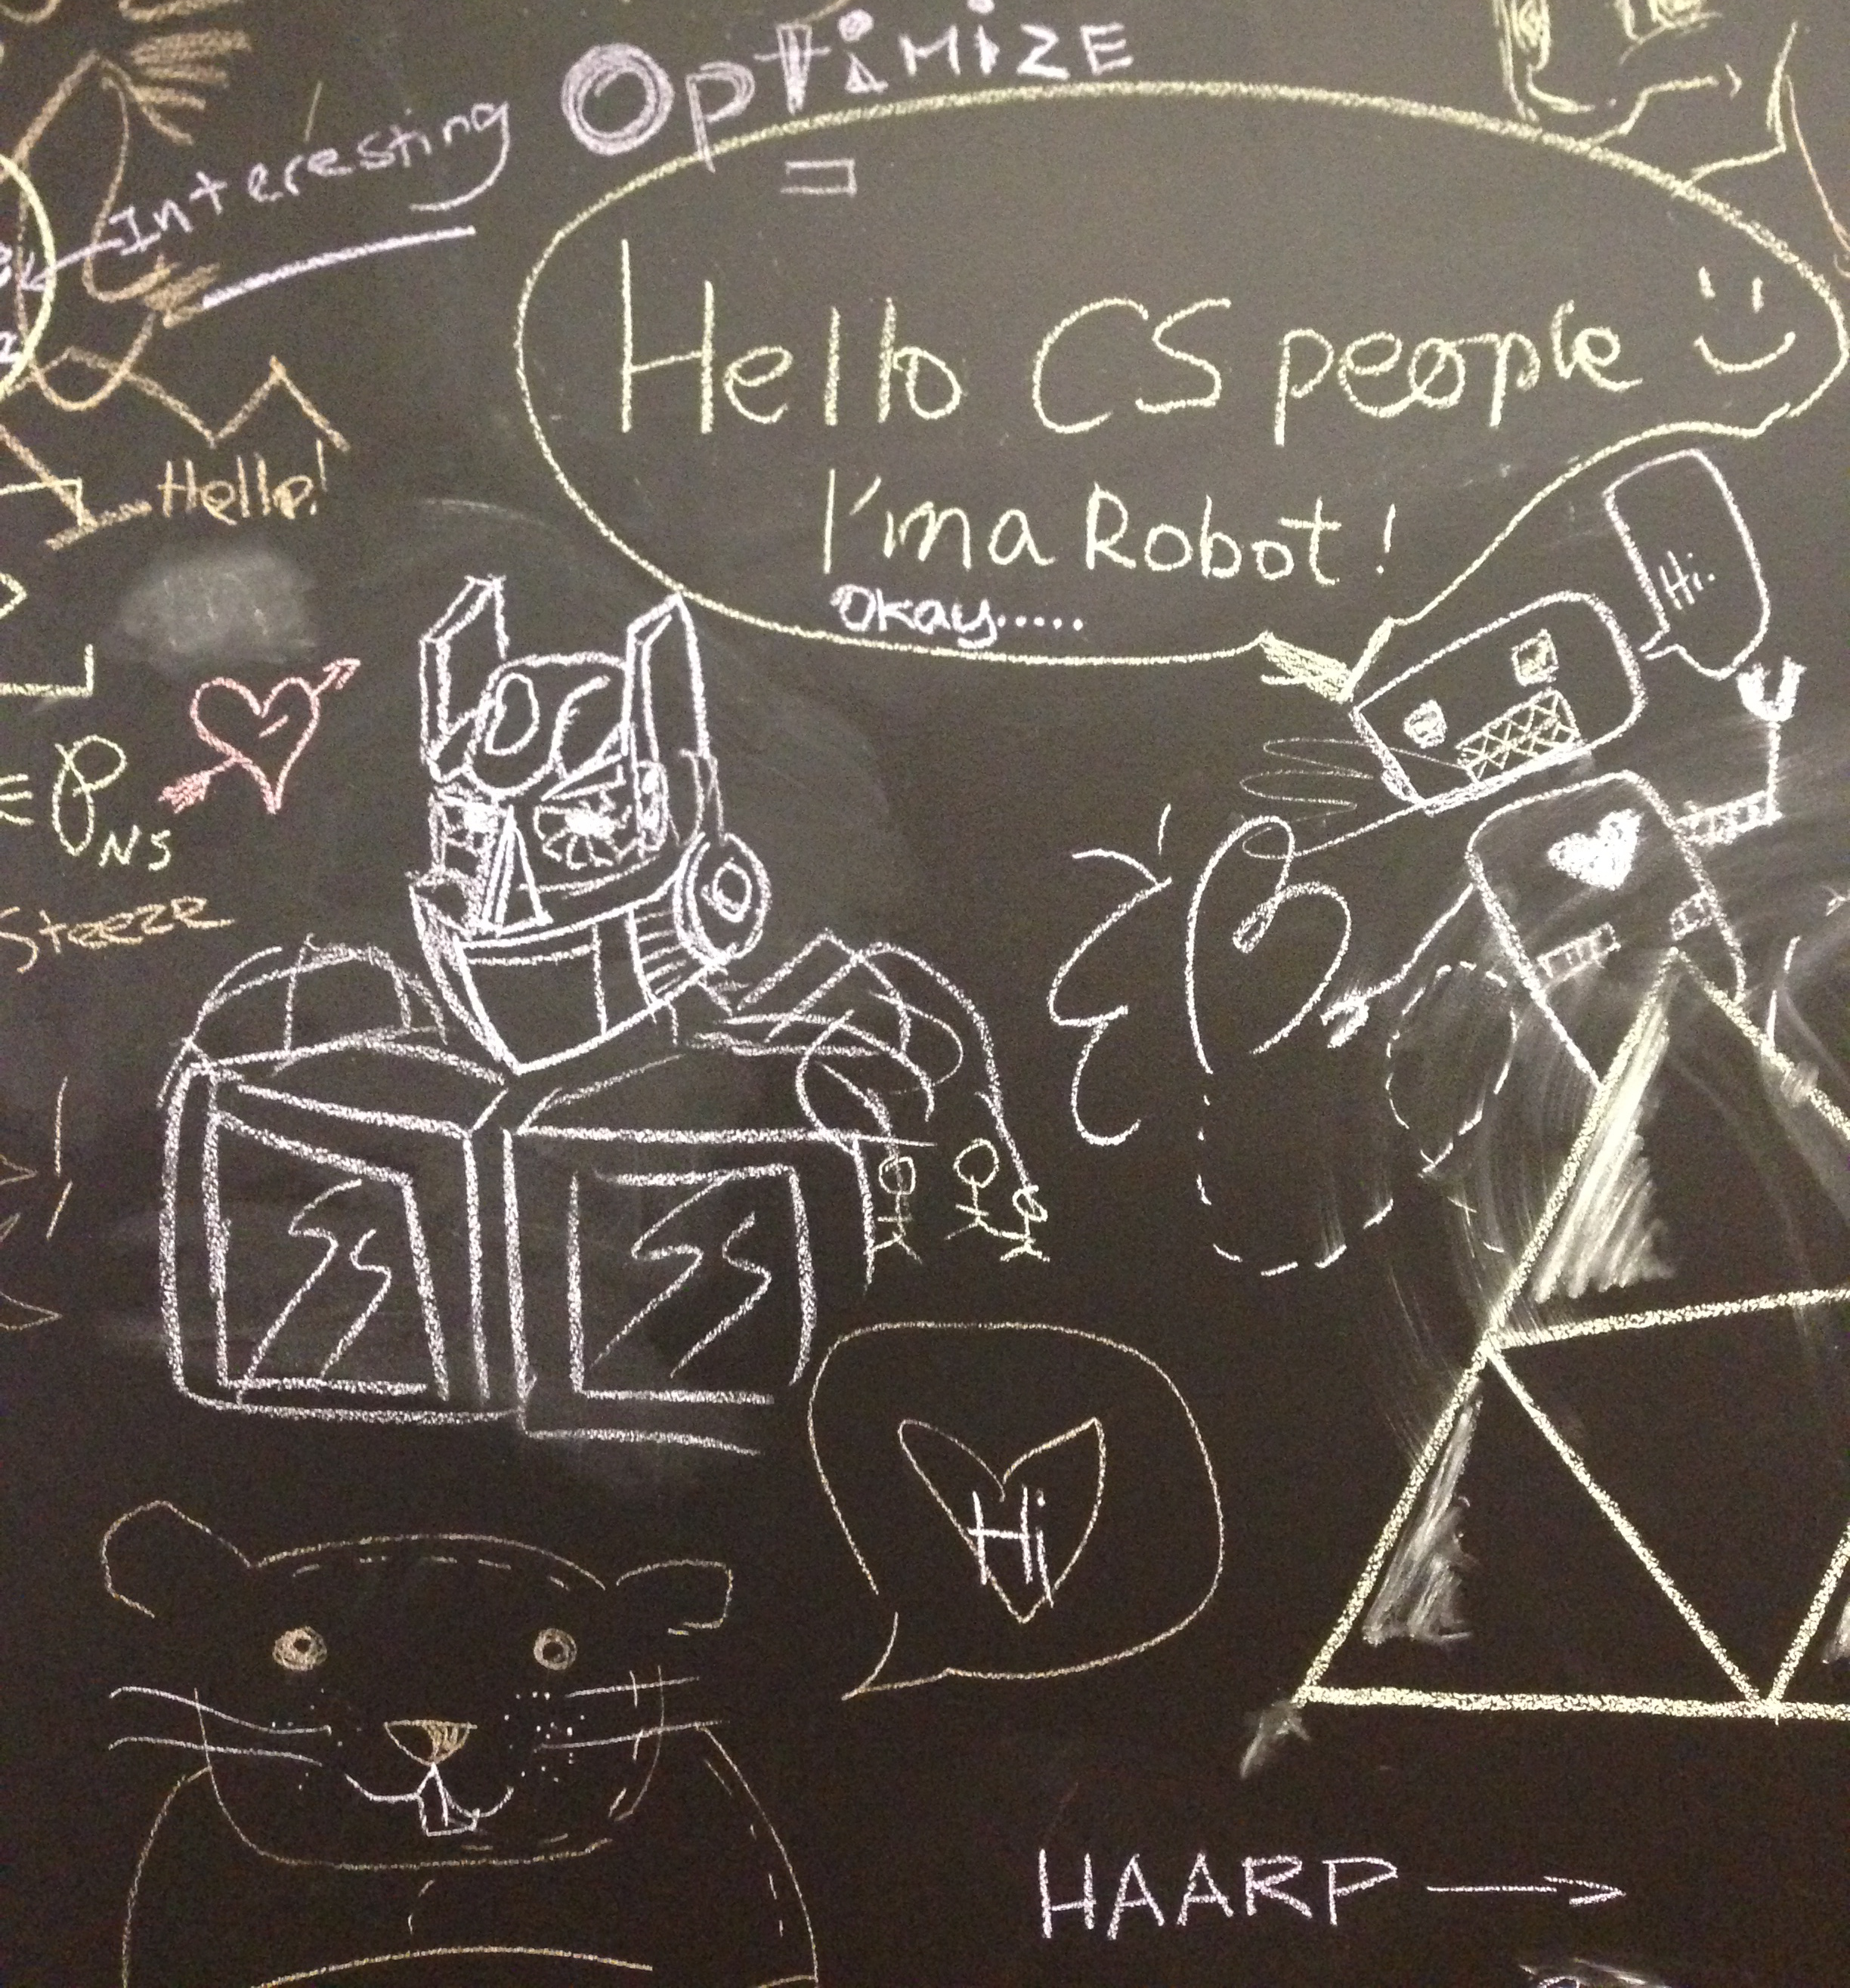 OptimizE
Interesting
Hello CS people
I'm a Robot!
Okay.....
Hi.
Hello!
NS
Steeze
Hi
HAARP